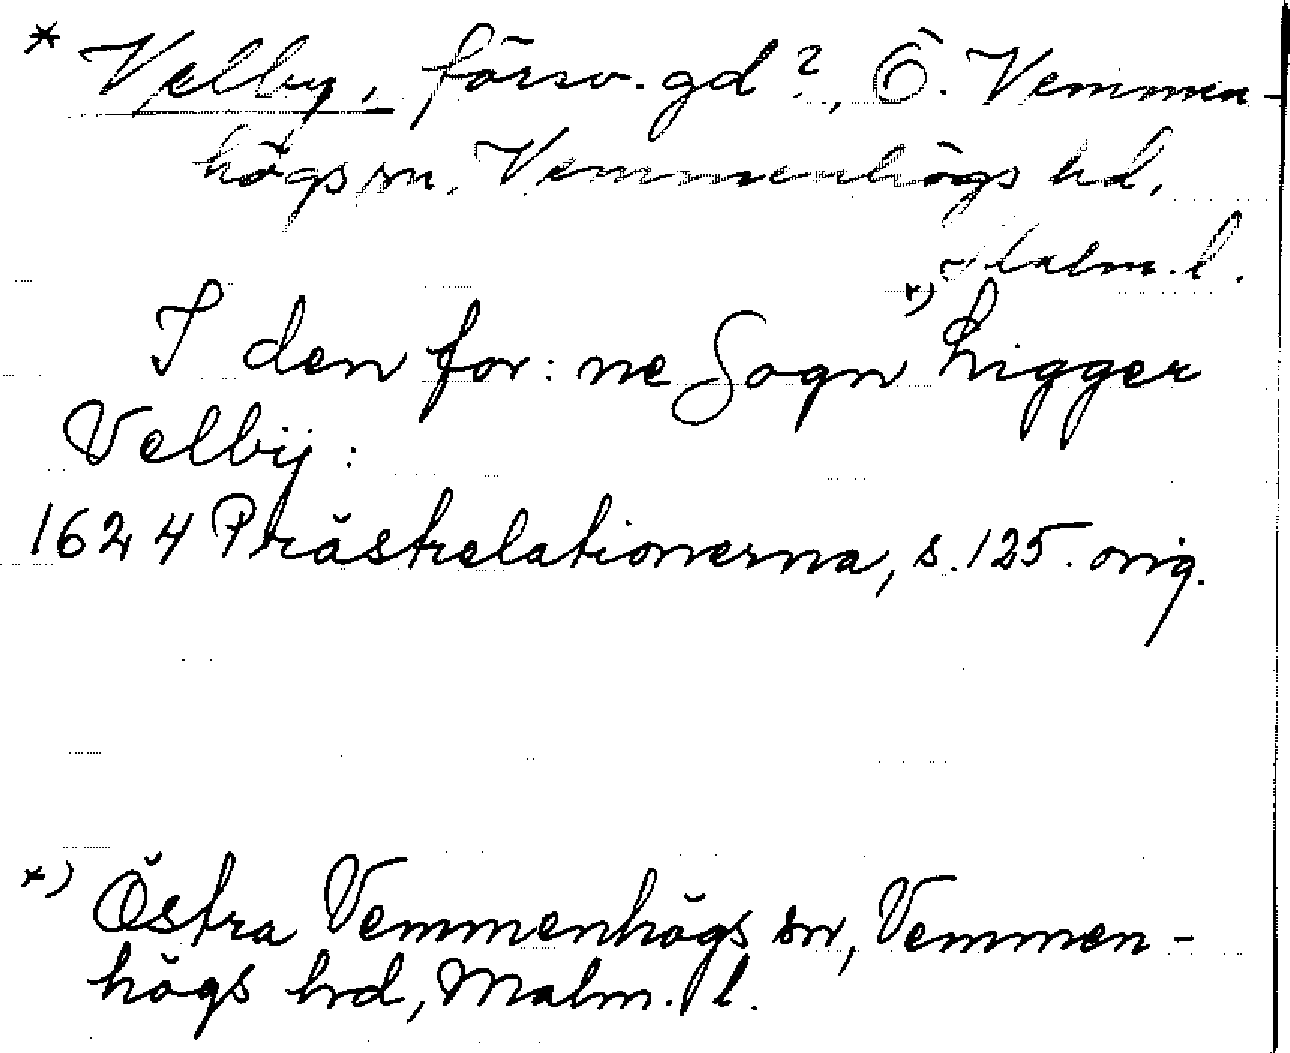 * Velby, försv. gd?, Ö. Vemmen-
högs sn. Vemmenhögs hd.
Malm. l.
I den for: ne Sogn *) Ligger
Velbÿ:
1624 Prästrelationerna, s. 125. orig.
*) Östra Vemmenhögs sn, Vemmen-
högs hrd, Malm. l.